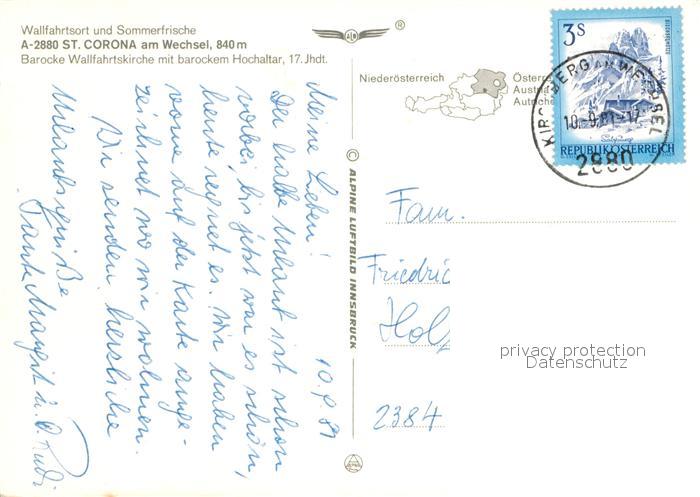 Wallfahrtsort und Sommerfrische
A-2880 ST. CORONA am Wechsel, 840 m
Barocke Wallfahrtskirche mit barockem Hochaltar, 17. Jhdt.
AD
®
Niederösterreich
Österre
Austria
Autriche
3s
REPUBLIK ÖSTERREICH
KIRCHBERG AM WECHSEL
10.-9.81-17
2880
© ALPINE LUFTBILD INNSBRUCK
10.9.81
Meine Lieben!
Der halbe Urlaub ist schon
vorbei, bis jetzt war es schön,
heute regnet es. Wir haben
vorne auf der Karte ange-
zeichnet wo wir wohnen.
Wir senden herzliche
Urlaubsgrüße
Tante Margit u. O. Rudi
Fam.
Friedric
Holz
2384
privacy protection
Datenschutz